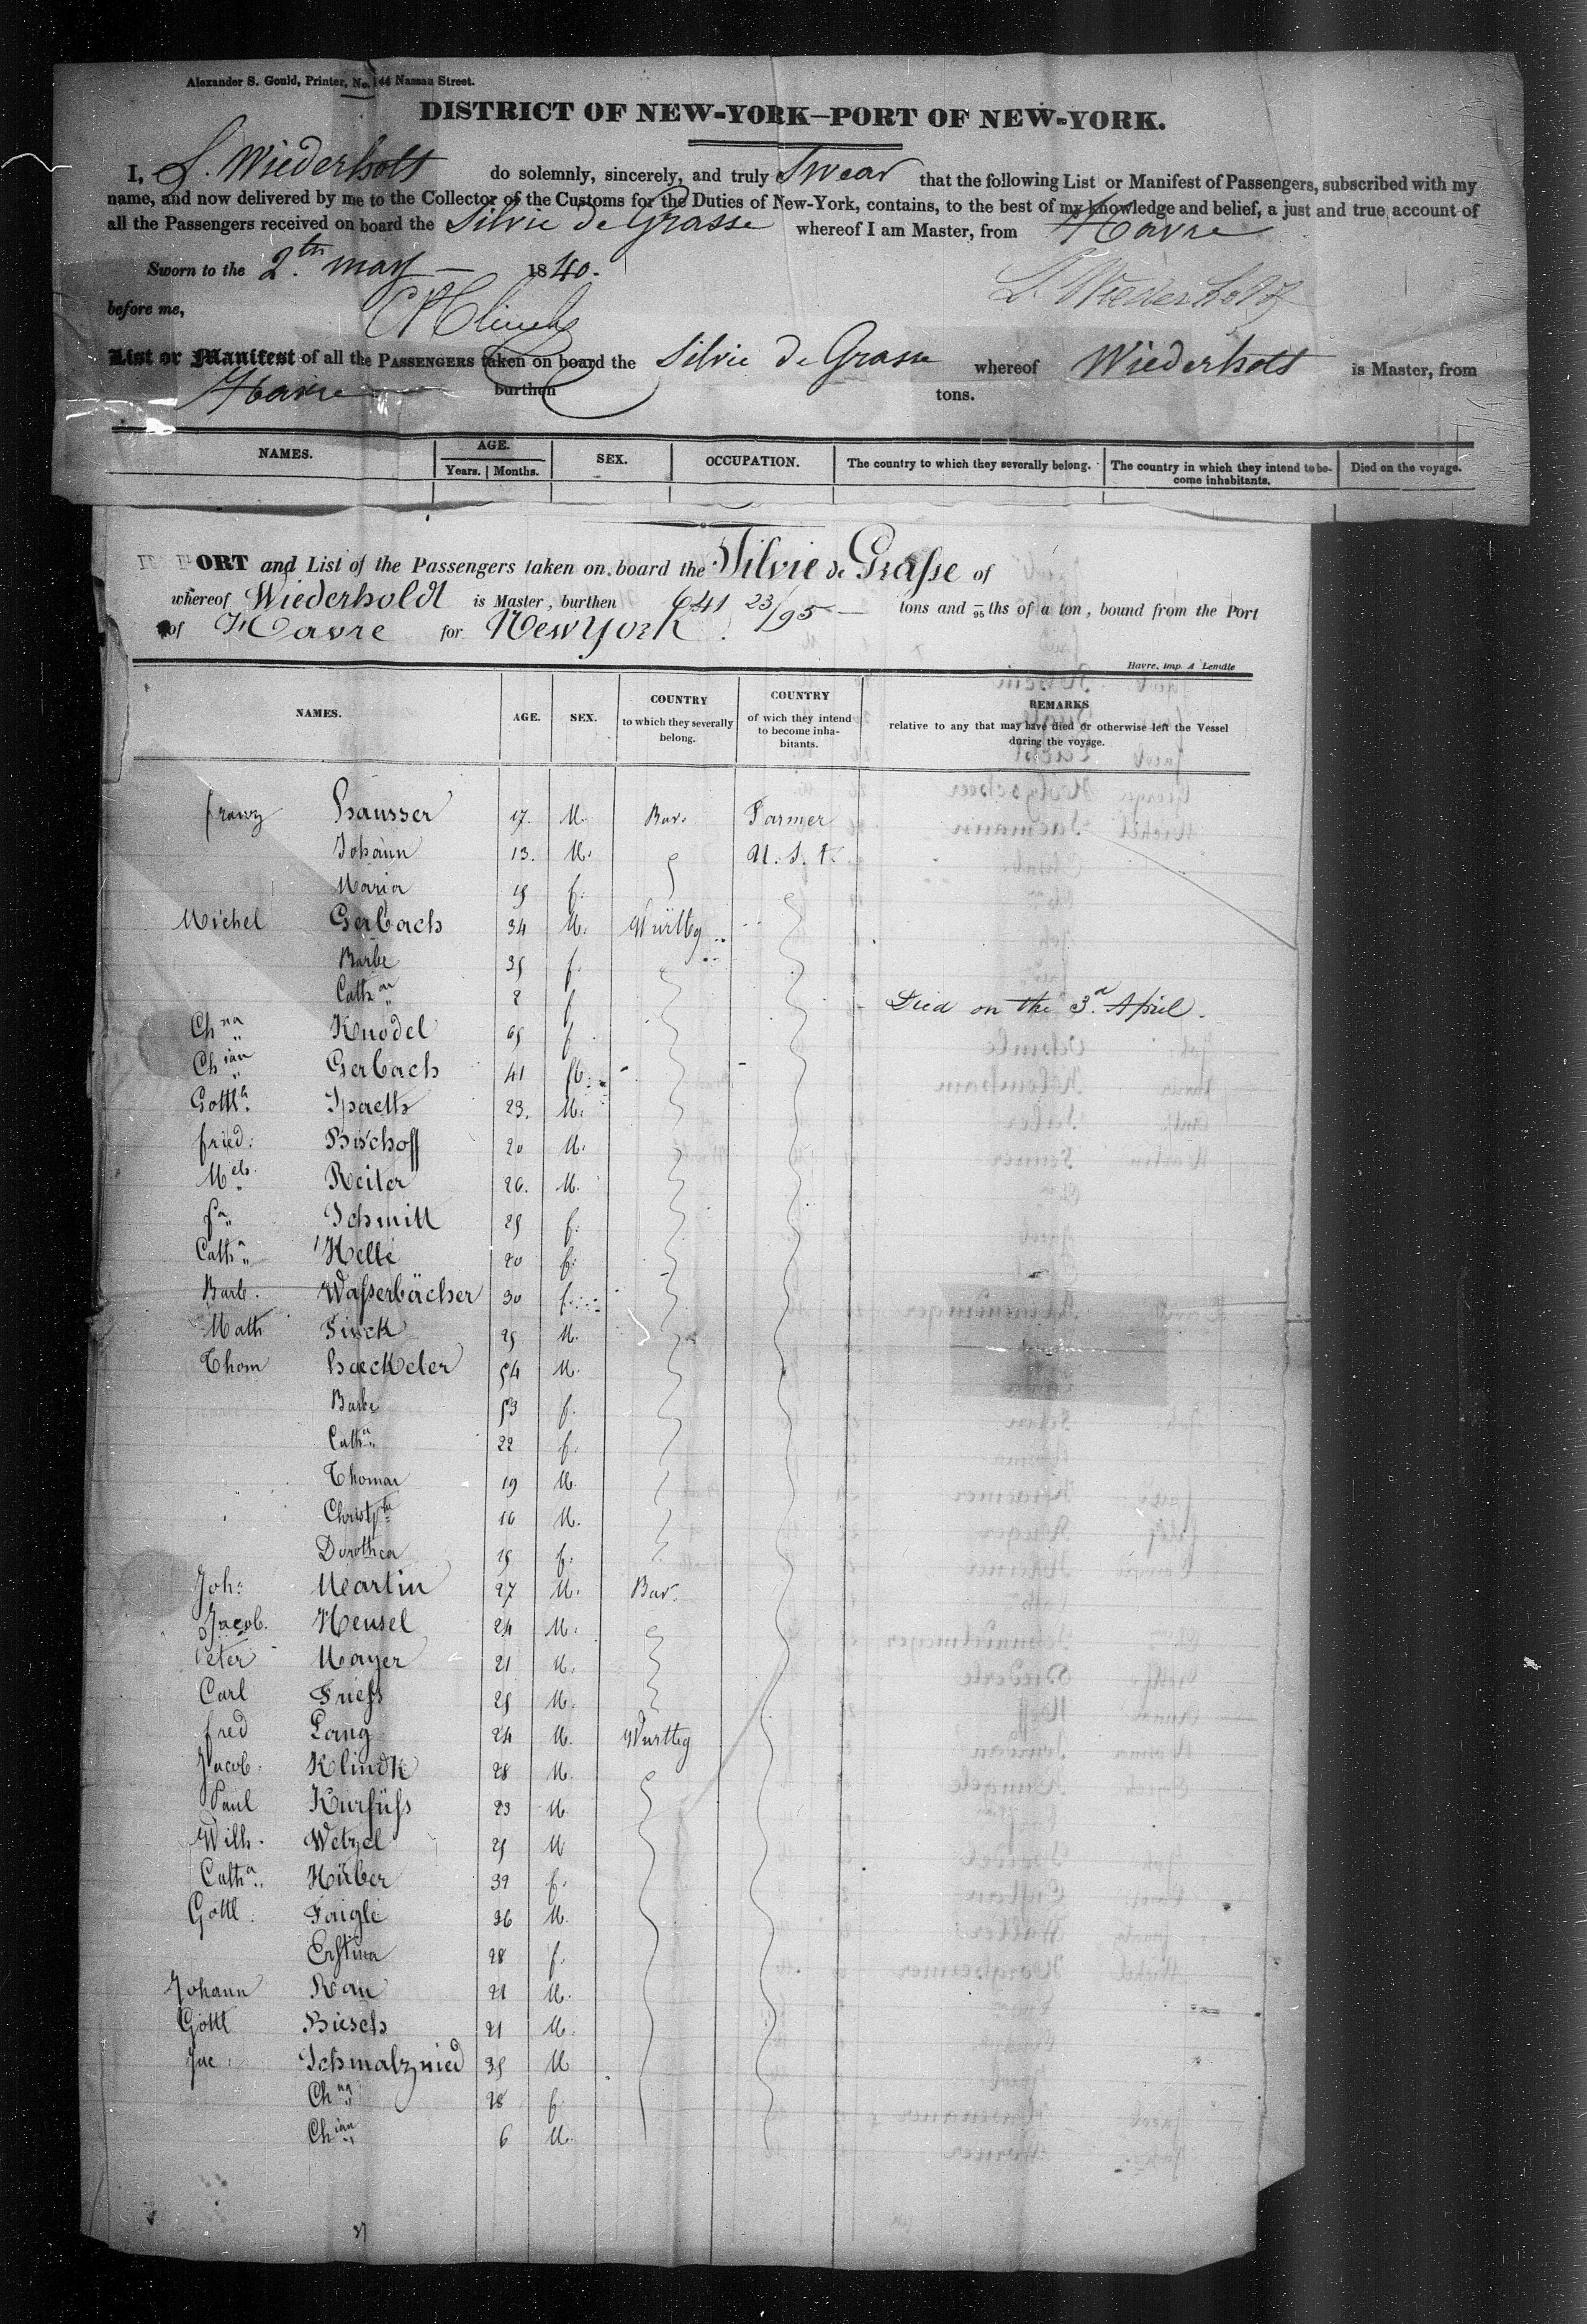 Alexander S. Gould, Printer, No. 144 Nassau Street.
DISTRICT OF NEW-YORK—PORT OF NEW-YORK.
I, L. Wiederholt do solemnly, sincerely, and truly Swear that the following List or Manifest of Passengers, subscribed with my
name, and now delivered by me to the Collector of the Customs for the Duties of New-York, contains, to the best of my knowledge and belief, a just and true account of
all the Passengers received on board the Silvie de Grasse whereof I am Master, from Havre
Sworn to the 2.th may — 1840.
before me,
L. Wiederholdt
List or Manifest of all the PASSENGERS taken on board the Silvie De Grasse whereof Wiederholt is Master, from
Havre burthen tons.
NAMES. AGE. SEX. OCCUPATION. The country to which they severally belong. The country in which they intend to be- Died on the voyage.
Years. Months. come inhabitants.
ORT and List of the Passengers taken on board the Silvie de Grasse of
whereof Wiederholdt is Master, burthen 641 23/95 — tons and –/95 ths of a ton, bound from the Port
of Havre for New York.
Havre, imp. A Lemâle
NAMES. AGE. SEX. COUNTRY to which they severally belong. COUNTRY of wich they intend to become inha- bitants. REMARKS relative to any that may have died or otherwise left the Vessel during the voyage.
franz Hausser 17. M. Bav. Farmer
Johann 13. M. U. S.
Maria 19 f.
Michel Gerbach 34 M. Württg
Barbe 35 f.
Cath 2 f Died on the 3d. April.
Chna Knodel 65 f
Chian Gerbach 41 M.
Gottl Spaeth 23. M.
fried: Bischoff 20 M.
Mch Reiter 26. M.
Schmitt 25 f.
Catha Helle 20 f.
Barb. Wasserbächer 30 f.
Math Finck 25 M.
Thom haeckeler 54 M.
Barbe 53 f.
Catha 22 f.
Thomas 19 M.
Christ 16 M.
Dorothea 15 f.
Joh: Martin 27 M. Bav.
Jacob. Heusel 24 M.
Peter Mayer 21 M.
Carl Friess 25 M.
fred Lang 24 M. Wurttg
Jacob. Klindk 28 M.
Paul Kurfüss 23 M
Wilh. Wetzel 25 M
Catha Huber 32 f.
Gottl. Faigle 36 M.
Erstina 28 f.
Johann Rau 21 M.
Gottl Biesch 21 M.
Jac. Schmalznied 35 M
Chna 28 f.
Chian 6 M.